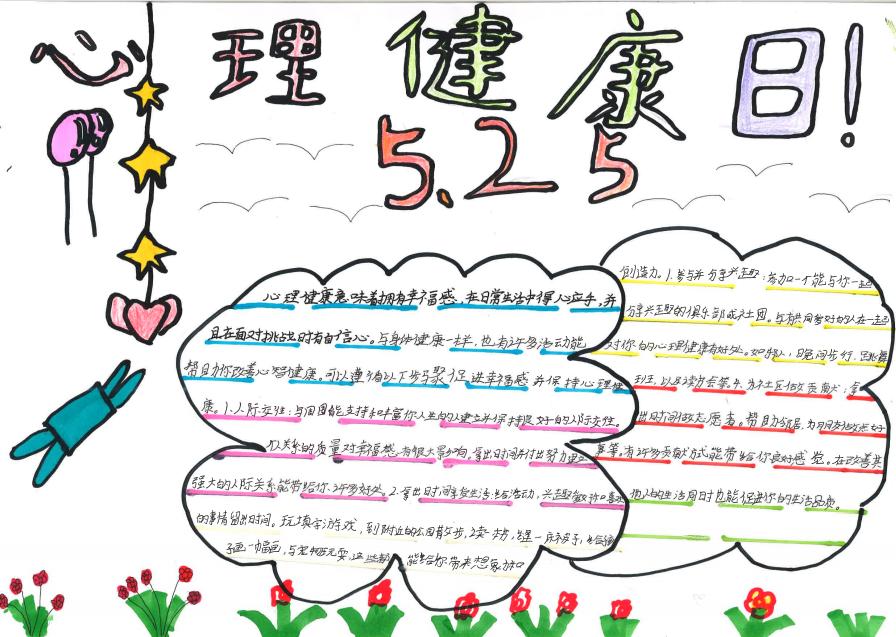 心理健康日!
5.25
心理健康意味着拥有幸福感,在日常生活中得心应手,并
且在面对挑战时有自信心。与身体健康一样,也有许多活动能
帮助你改善心智健康。可以遵循以下步骤促进幸福感并保持心理健
康。1.人际交往:与周围能支持和丰富你人生的人建立并保持良好的人际交往。
人际关系的质量对幸福感有很大影响。富出时间并付出努力建立
强大的人际关系能带给你许多好处。2.富出时间享受生活:给活动,兴趣爱好和喜欢
的事情留出时间。玩填字游戏,到附近的公园散步,读一本书,缝一床被子,
画一幅画,与宠物玩耍,这些都能给你带来想象力和
创造力。1.参与并分享兴趣:参加一个能与你一起
分享兴趣的俱乐部或社团。与有共同爱好的人在一起
对你的心理健康有好处。如投入,日跑间步行,
班,以及读书会等。4.为社区做贡献:富
出时间做志愿者。帮助邻居,为朋友做点好
事等。有许多贡献方式能带给你良好感觉。在改善其
他人的生活同时也能促进你的生活品质。